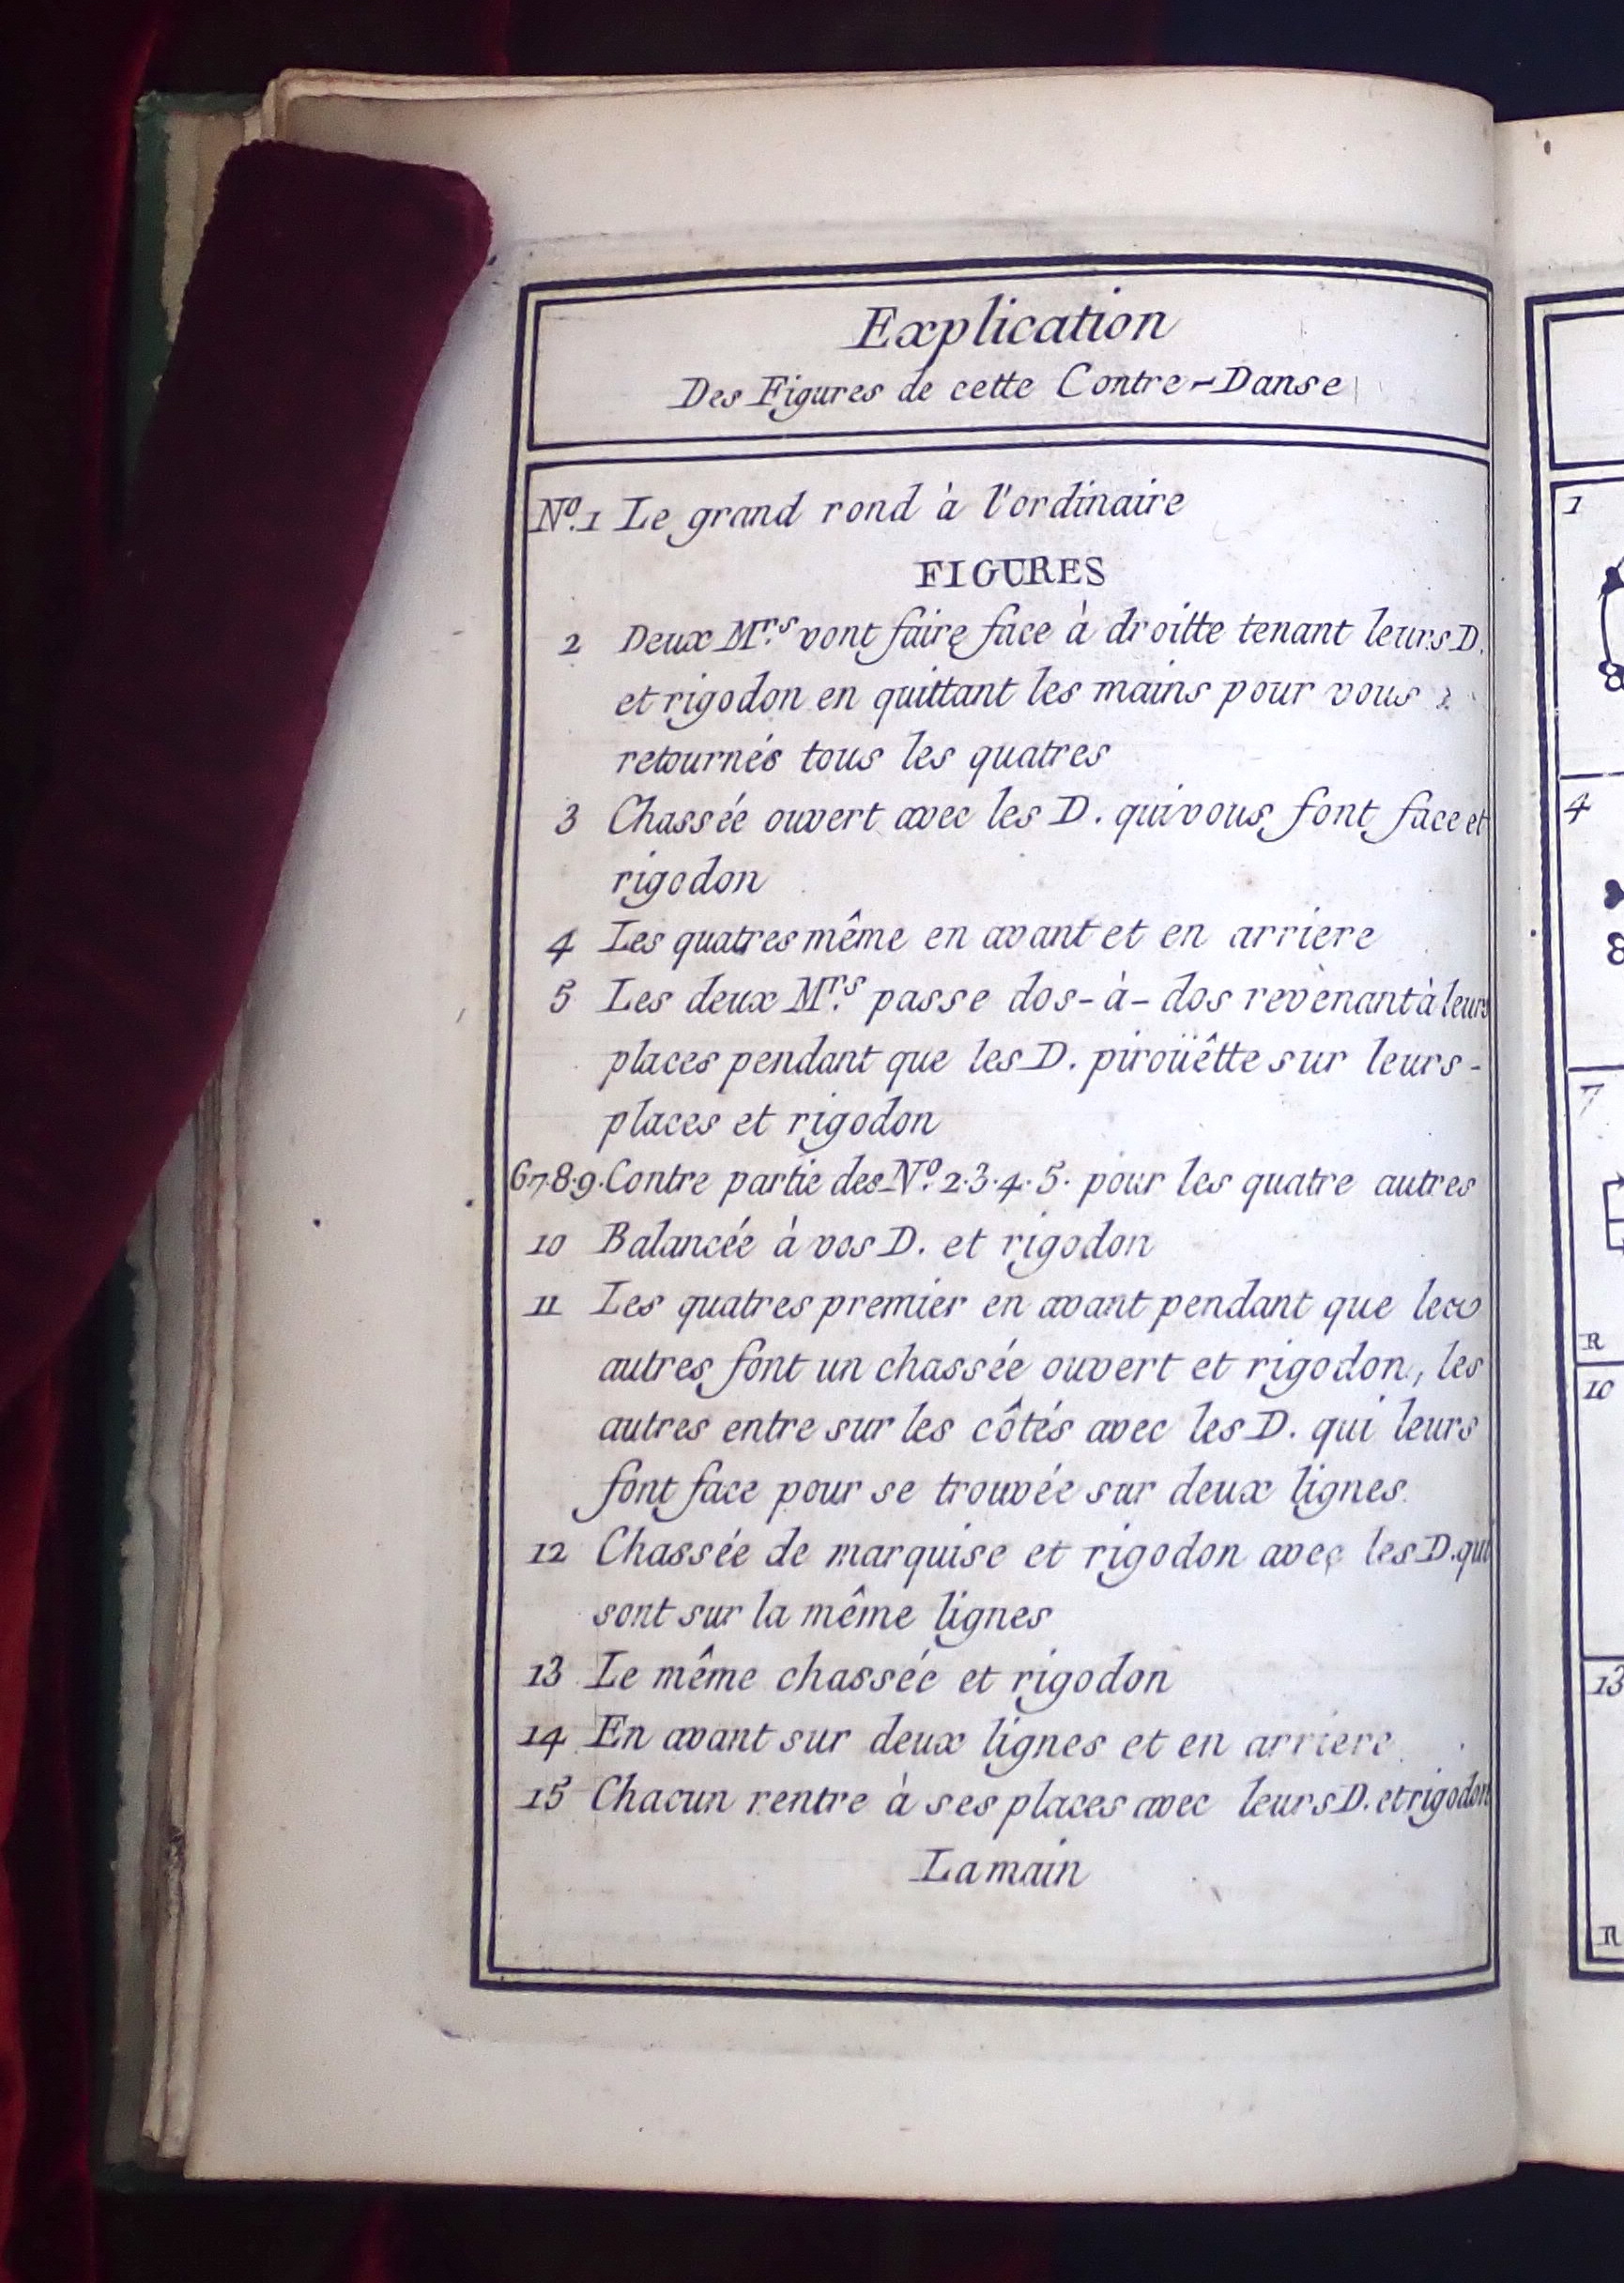 Explication
Des Figures de cette Contre-Danse
Nº.1 Le grand rond à l'ordinaire
FIGURES
2 Deux Mrs. vont faire face à droitte tenant leurs D.
et rigodon en quittant les mains pour vous
retournés tous les quatres
3 Chassée ouvert avec les D. qui vous font face et
rigodon
4 Les quatres même en avant et en arriere
5 Les deux Mrs. passe dos-à-dos revenant à leurs
places pendant que les D. piroüêtte sur leurs-
places et rigodon
6.7.8.9. Contre partie des Nº. 2.3.4.5. pour les quatre autres
10 Balancée à vos D. et rigodon
11 Les quatres premier en avant pendant que les
autres font un chassée ouvert et rigodon, les
autres entre sur les côtés avec les D. qui leurs
font face pour se trouvée sur deux lignes.
12 Chassée de marquise et rigodon avec les D. qui
sont sur la même lignes
13 Le même chassée et rigodon
14 En avant sur deux lignes et en arriere
15 Chacun rentre à ses places avec leurs D. et rigodon
La main
1
4
7
R
10
13
R